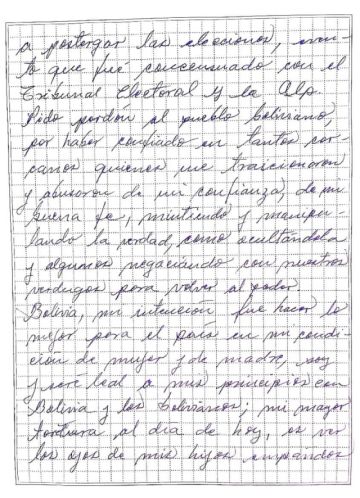 a postergar las elecciones, even-
to que fué concensuado con el
Tribunal Electoral y la Alp.
Pido perdón al pueblo boliviano,
por haber confiado en tantos cer-
canos quienes me traicionaron
y abusaron de mi confianza, de mi
buena fe, mintiendo y manipu-
lando la verdad, como ocultándola
y algunos negociando con nuestros
verdugos para volver al poder.
Bolivia, mi intención fue hacer lo
mejor para el país en mi condi-
ción de mujer y de madre, soy
y seré leal a mis principios con
Bolivia y los bolivianos; mi mayor
tortura al día de hoy, es ver
los ojos de mis hijos empandos